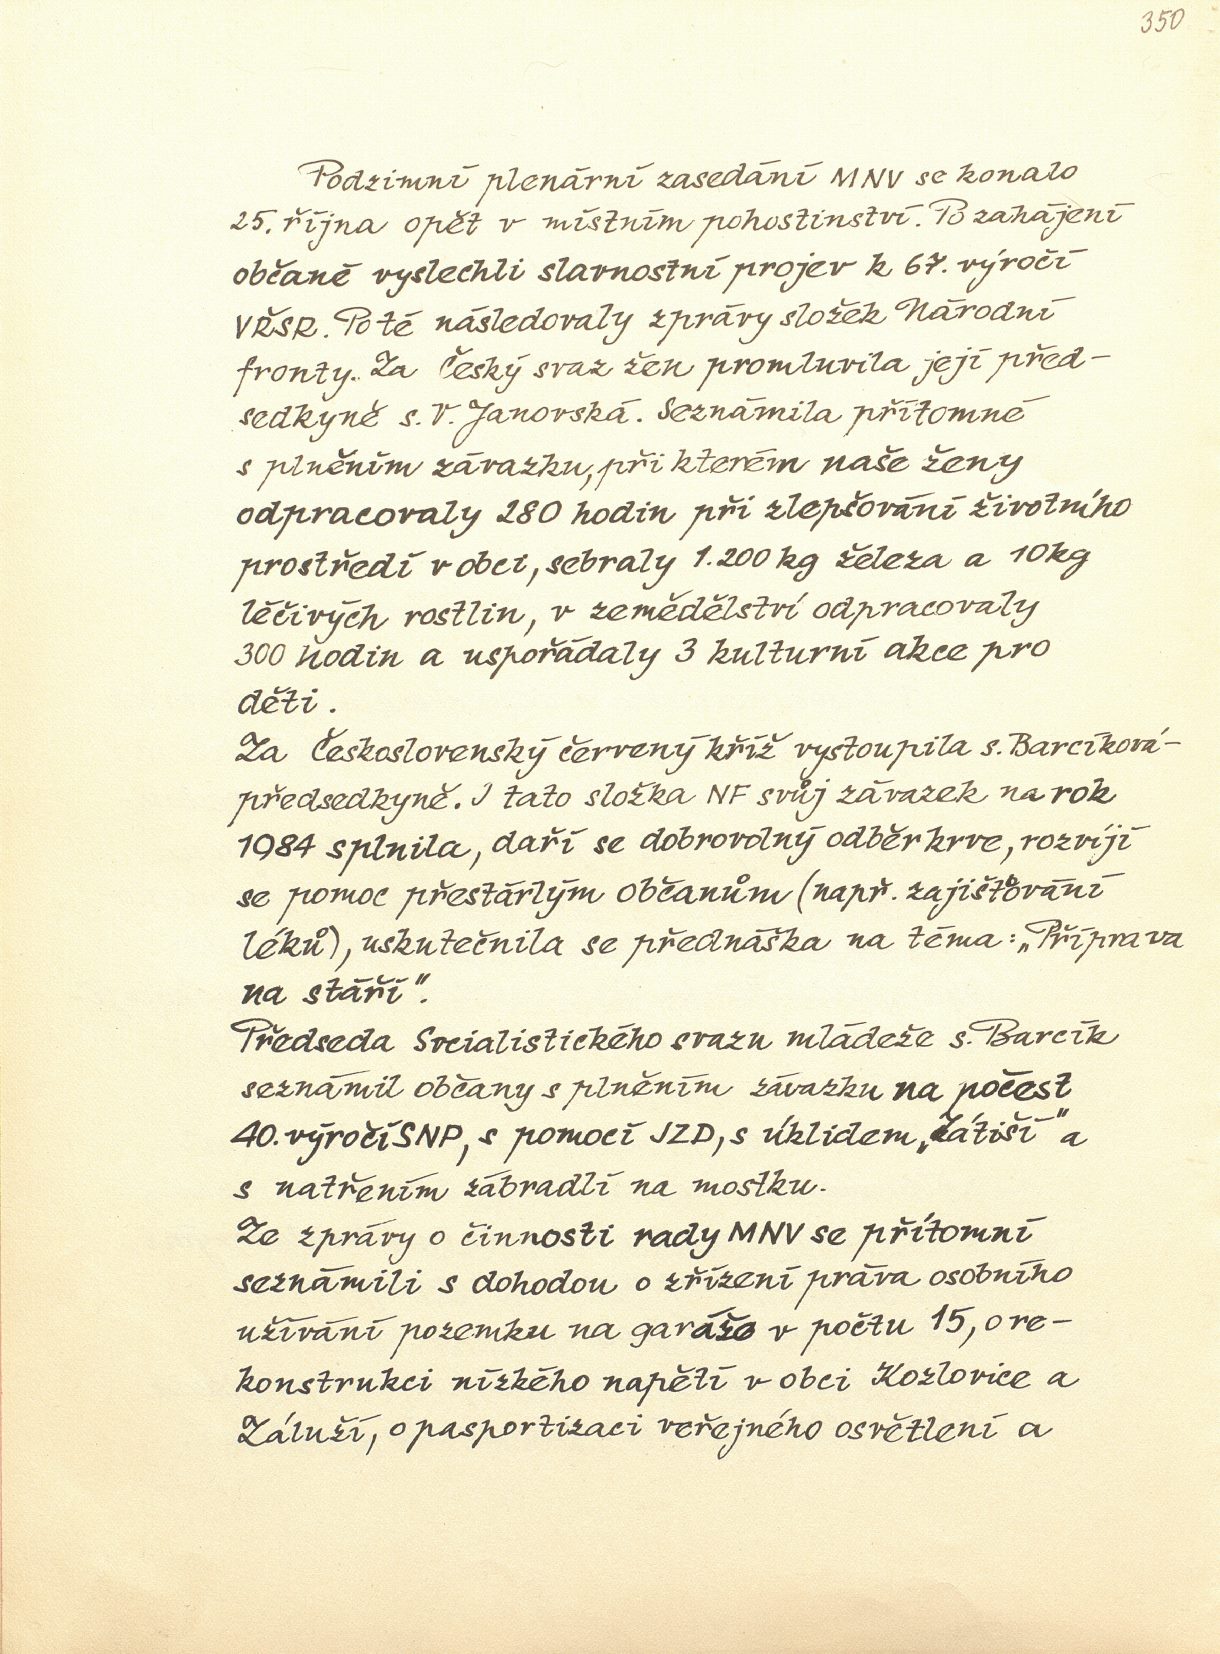 350
Podzimní plenární zasedání MNV se konalo
25. října opět v místním pohostinství. Po zahájení
občané vyslechli slavnostní projev k 67. výročí
VŘSR. Poté následovaly zprávy složek Národní
fronty. Za Český svaz žen promluvila její před-
sedkyně s. V. Janovská. Seznámila přítomné
s plněním závazku, při kterém naše ženy
odpracovaly 280 hodin při zlepšování životního
prostředí v obci, sebraly 1.200 kg železa a 10 kg
léčivých rostlin, v zemědělství odpracovaly
300 hodin a uspořádaly 3 kulturní akce pro
děti.
Za Československý červený kříž vystoupila s. Barcíková-
předsedkyně. I tato složka NF svůj závazek na rok
1984 splnila, daří se dobrovolný odběr krve, rozvíjí
se pomoc přestárlým občanům (např. zajišťování
léků), uskutečnila se přednáška na téma: „Příprava
na stáří".
Předseda Socialistického svazu mládeže s. Barcík
seznámil občany s plněním závazku na počest
40. výročí SNP, s pomocí JZD, s úklidem „Zátiší" a
s natřením zábradlí na mostku.
Ze zprávy o činnosti rady MNV se přítomní
seznámili s dohodou o zřízení práva osobního
užívání pozemku na garáže v počtu 15, o re-
konstrukci nízkého napětí v obci Kozlovice a
Záluží, o pasportizaci veřejného osvětlení a